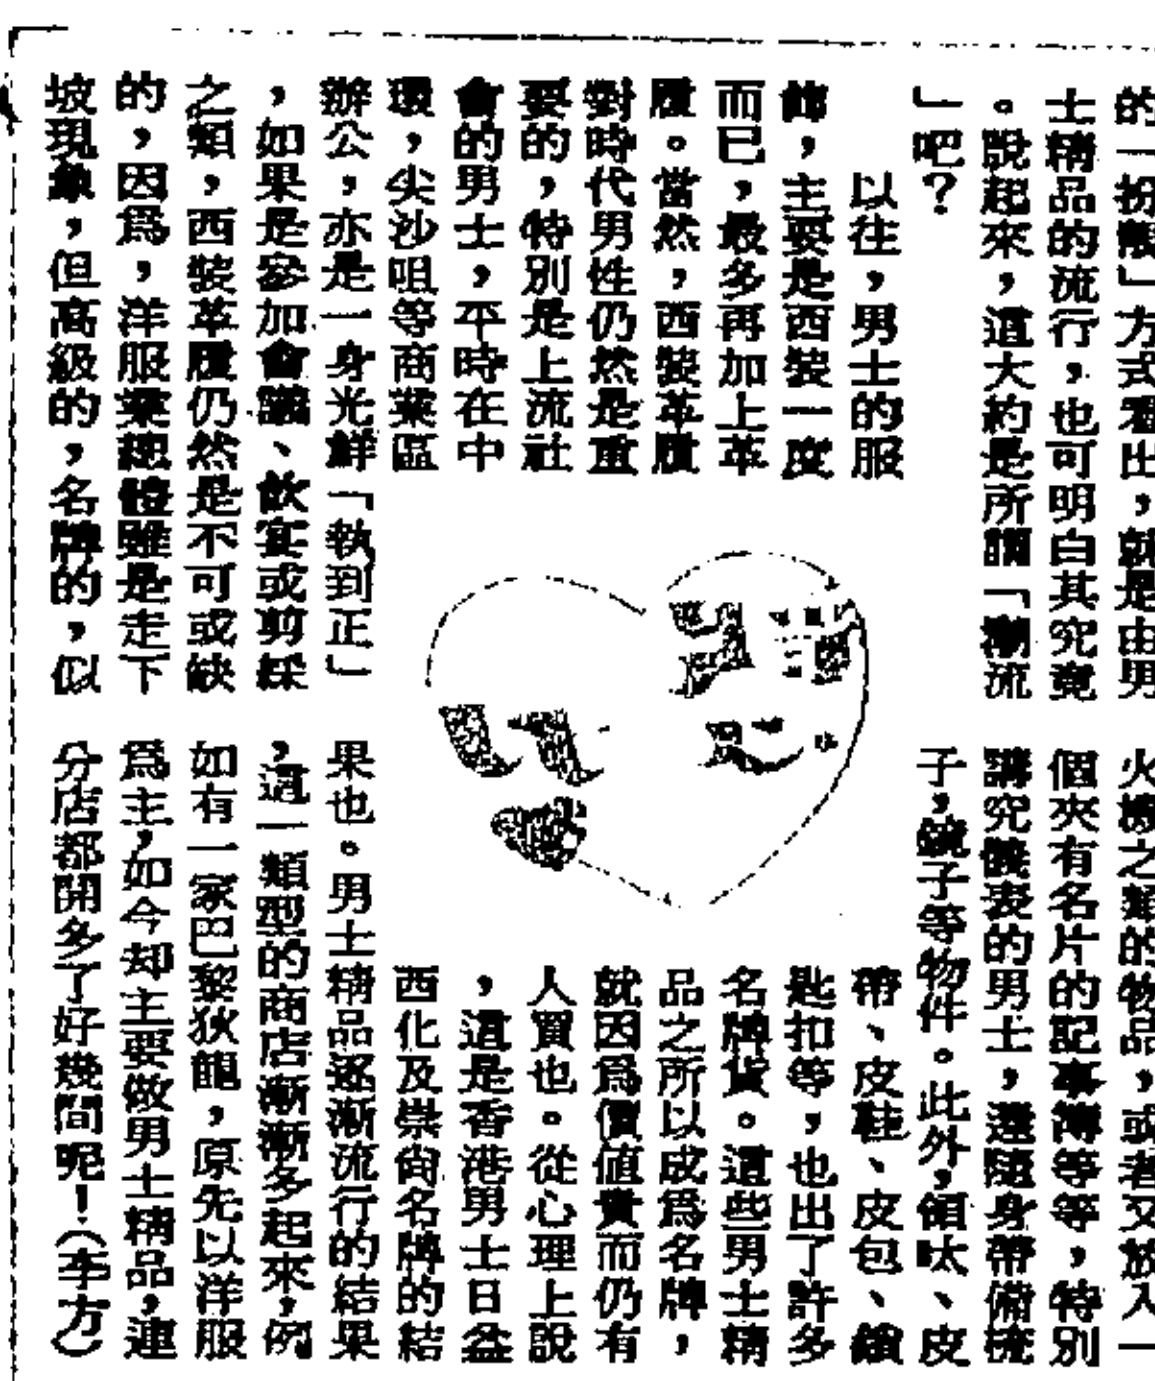 的一扮靚」方式看出，就是由男
士精品的流行，也可明白其究竟
。說起來，這大約是所謂「潮流
」吧？
以往，男士的服
飾，主要是西裝一度
而已，最多再加上革
履。當然，西裝革履
對時代男性仍然是重
要的，特別是上流社
會的男士，平時在中
環，尖沙咀等商業區
辦公，亦是一身光鮮「執到正」
，如果是參加會議、飲宴或剪綵
之類，西裝革履仍然是不可或缺
的，因爲，洋服業總體雖是走下
坡現象，但高級的，名牌的，似
火機之類的物品，或者又放入一
個夾有名片的記事簿等等，特別
講究儀表的男士，還隨身帶備梳
子，鏡子等物件。此外，領呔、皮
帶、皮鞋、皮包、鎖
匙扣等，也出了許多
名牌貨。這些男士精
品之所以成爲名牌，
就因爲價值貴而仍有
人買也。從心理上說
，這是香港男士日益
西化及崇尙名牌的結
果也。男士精品逐漸流行的結果
，這一類型的商店漸漸多起來，例
如有一家巴黎狄龍，原先以洋服
爲主，如今却主要做男士精品，連
分店都開多了好幾間呢！（李方）